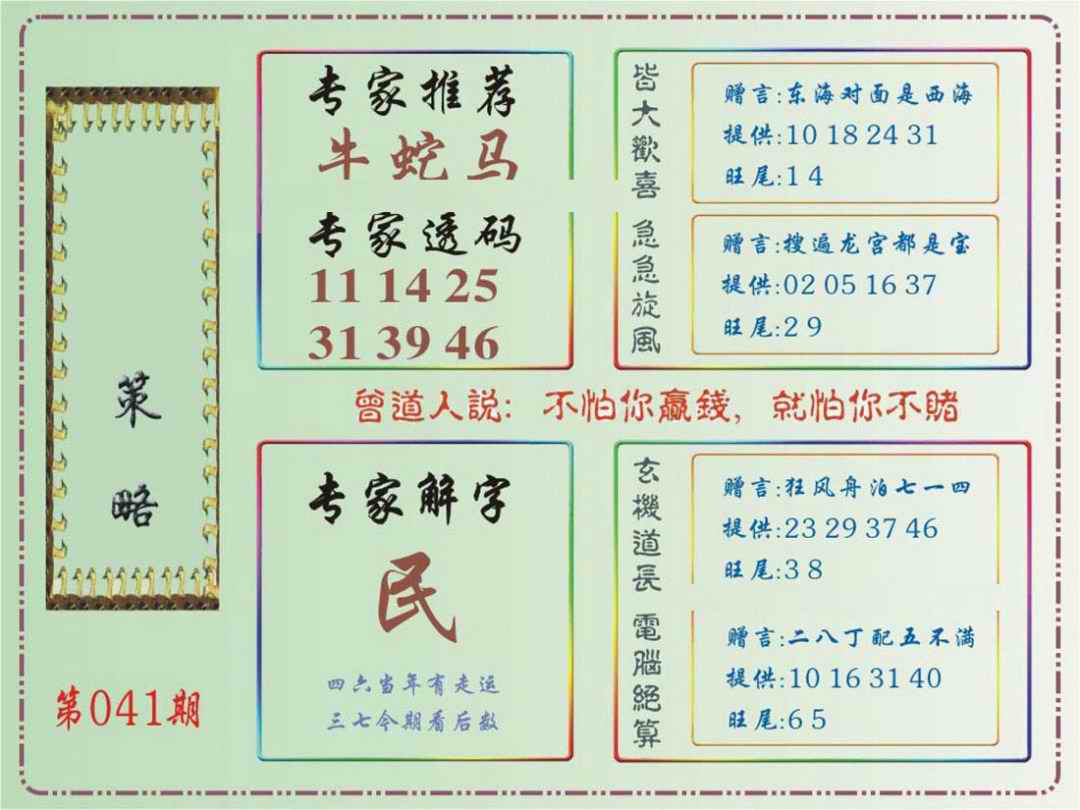 策
略
第041期
专家推荐
牛蛇马
专家透码
11 14 25
31 39 46
皆大歡喜
赠言:东海对面是西海
提供:10 18 24 31
旺尾:1 4
急急旋風
赠言:搜遍龙宫都是宝
提供:02 05 16 37
旺尾:2 9
曾道人説: 不怕你贏錢, 就怕你不賭
专家解字
民
四六当年有走运
三七今期看后数
玄機道長
赠言:狂风舟泊七一四
提供:23 29 37 46
旺尾:3 8
電腦絕算
赠言:二八丁配五不满
提供:10 16 31 40
旺尾:6 5